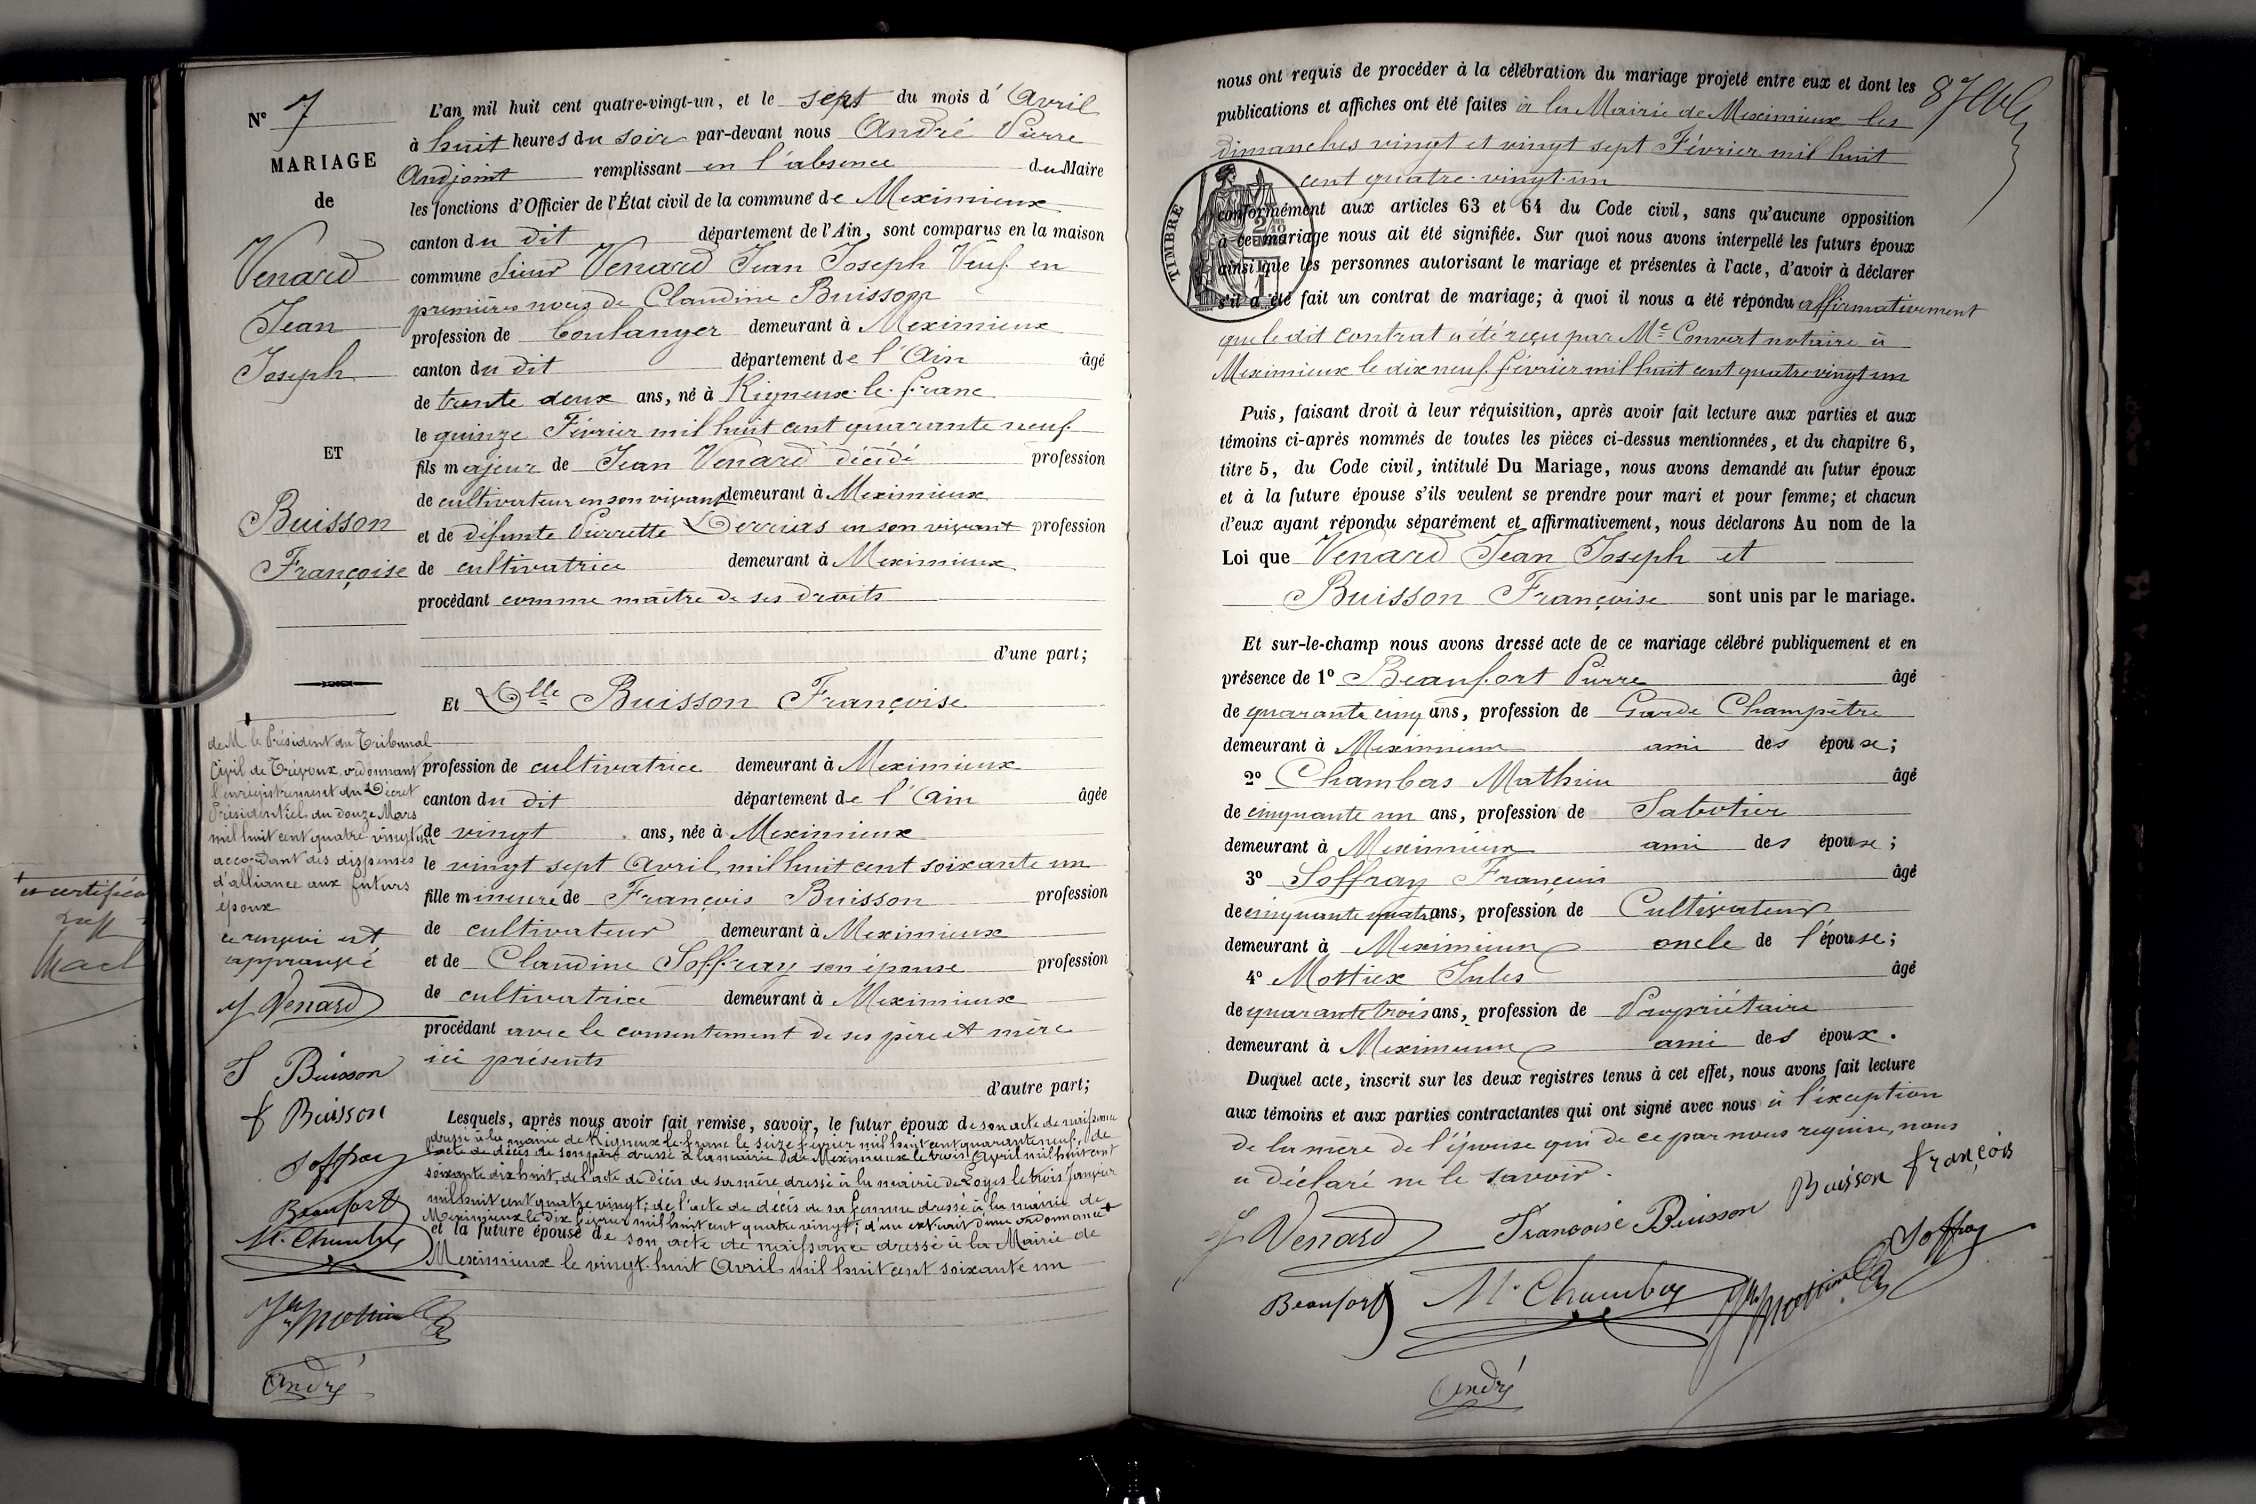 N° 7
MARIAGE
de
Venard
Jean
Joseph
ET
Buisson
Françoise
de M. le Président du Tribunal
Civil de Trévoux, ordonnant
l'enregistrement du Décret
Présidentiel du douze Mars
mil huit cent quatre vingt un
accordant des dispenses
d'alliance aux futurs
époux
ce renvoi est
approuvé
J Venard
F Buisson
f Buisson
Soffray
Beaufort
M. Chambas
André
L'an mil huit cent quatre-vingt-un, et le sept du mois d'Avril
à huit heures du soir par-devant nous André Pierre
Andjoint remplissant en l'absence du Maire
les fonctions d'Officier de l'État civil de la commune de Meximieux
canton du dit département de l'Ain, sont comparus en la maison
commune Sieur Venard Jean Joseph Veuf en
premières noces de Claudine Buisson
profession de boulanger demeurant à Meximieux
canton du dit département de l'Ain âgé
de trente deux ans, né à Rigneux-le-franc
le quinze Février mil huit cent quarante neuf
fils majeur de Jean Venard décédé profession
de cultivateur en son vivant demeurant à Meximieux
et de défunte Pierrette Derrias en son vivant profession
de cultivatrice demeurant à Meximieux
procédant comme maître de ses droits
d'une part;
Et Dlle Buisson Françoise
profession de cultivatrice demeurant à Meximieux
canton du dit département de l'Ain âgée
de vingt ans, née à Meximieux
le vingt sept Avril mil huit cent soixante un
fille mineure de François Buisson profession
de cultivateur demeurant à Meximieux
et de Claudine Soffray son épouse profession
de cultivatrice demeurant à Meximieux
procédant avec le consentement de ses père et mère
ici présents
d'autre part;
Lesquels, après nous avoir fait remise, savoir, le futur époux de son acte de naissance
dressé à la mairie de Rigneux-le-franc le seize février mil huit cent quarante neuf, de
l'acte de décès de son père dressé à la mairie de Meximieux le trois Avril mil huit cent
soixante dix huit, de l'acte de décès de sa mère dressé à la mairie de Loyes le trois Janvier
mil huit cent quatre vingt; de l'acte de décès de sa femme dressé à la mairie de
Meximieux le dix février mil huit cent quatre vingt; d'un extrait d'une ordonnance
et la future épouse de son acte de naissance dressé à la Mairie de
Meximieux le vingt-huit Avril mil huit cent soixante un
nous ont requis de procéder à la célébration du mariage projeté entre eux et dont les
publications et affiches ont été faites à la Mairie de Meximieux les
dimanches vingt et vingt sept Février mil huit
cent quatre-vingt-un
TIMBRE
conformément aux articles 63 et 64 du Code civil, sans qu'aucune opposition
à ce mariage nous ait été signifiée. Sur quoi nous avons interpellé les futurs époux
ainsi que les personnes autorisant le mariage et présentes à l'acte, d'avoir à déclarer
s'il a été fait un contrat de mariage; à quoi il nous a été répondu affirmativement
que le dit contrat a été reçu par Me Convert notaire à
Meximieux le dix neuf février mil huit cent quatre vingt un
Puis, faisant droit à leur réquisition, après avoir fait lecture aux parties et aux
témoins ci-après nommés de toutes les pièces ci-dessus mentionnées, et du chapitre 6,
titre 5, du Code civil, intitulé Du Mariage, nous avons demandé au futur époux
et à la future épouse s'ils veulent se prendre pour mari et pour femme; et chacun
d'eux ayant répondu séparément et affirmativement, nous déclarons Au nom de la
Loi que Venard Jean Joseph et
Buisson Françoise sont unis par le mariage.
Et sur-le-champ nous avons dressé acte de ce mariage célébré publiquement et en
présence de 1° Beaufort Pierre âgé
de quarante cinq ans, profession de Garde Champêtre
demeurant à Meximieux ami des époux;
2° Chambas Mathieu âgé
de cinquante un ans, profession de Sabotier
demeurant à Meximieux ami des époux;
3° Soffray François âgé
de cinquante quatre ans, profession de Cultivateur
demeurant à Meximieux oncle de l'épouse;
4° Mottiex Jules âgé
de quarante trois ans, profession de Propriétaire
demeurant à Meximieux ami des époux.
Duquel acte, inscrit sur les deux registres tenus à cet effet, nous avons fait lecture
aux témoins et aux parties contractantes qui ont signé avec nous à l'exception
de la mère de l'épouse qui de ce par nous requise, nous
a déclaré ne le savoir.
J Venard Françoise Buisson Buisson François
Beaufort M. Chambas Soffray
André